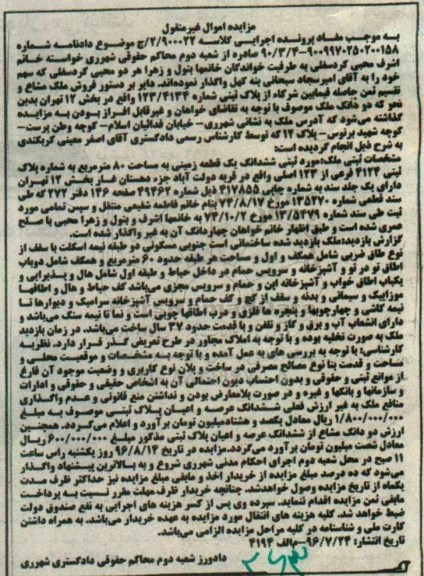 مزایده اموال غیرمنقول
به موجب مفاد پرونده اجرایی کلاسه ۲/۹۰۰۰۲۲/ج موضوع دادنامه شماره
۹۰۰۹۹۷۰۲۵۰۲۰۰۱۵۸-۹۰/۳/۴ صادره از شعبه دوم محاکم حقوقی شهرری خواسته خانم
اشرف محبی کردسفلی به طرفیت خواندگان خانمها بتول و زهرا هر دو محبی کردسفلی که سهم
خود را به آقای امیرسجاد سبحانی بنه کهل واگذار نموده‌اند، دایر بر دستور فروش ملک مشاع و
تقسیم ثمن حاصله فیمابین شرکاء از پلاک ثبتی شماره ۱۲۳/۴۱۲۴ واقع در بخش ۱۲ تهران بدین
نحو که دو دانگ ملک موصوف با توجه به تقاضای خواهان و غیرقابل افراز بودن به مزایده
گذاشته می‌شود که آدرس ملک به نشانی شهرری- خیابان فدائیان اسلام- کوچه وطن پرست-
کوچه شهید برنوس- پلاک ۱۲ که توسط کارشناس رسمی دادگستری آقای اصغر معینی کربکندی
به شرح ذیل انجام گردیده است:
مشخصات ثبتی ملک: مورد ثبتی ششدانگ یک قطعه زمینی به مساحت ۸۰ مترمربع به شماره پلاک
ثبتی ۴۱۲۴ فرعی از ۱۲۳ اصلی واقع در قریه دولت آباد جزء دهستان غار بخش ۱۲ تهران
دارای یک جلد سند به شماره چاپی ۴۱۷۸۵۵ ذیل شماره ۴۹۴۶۲ صفحه ۱۴۶ دفتر ۲۷۲ که طی
سند قطعی شماره ۱۳۵۲۷۰ مورخ ۷۴/۸/۱۷ بنام خانم فاطمه شفیعی منتقل و سپس تمامی مورد
ثبت طی سند شماره ۱۳/۵۴۷۹ مورخ ۷۴/۱۰/۲ به خانمها اشرف و بتول و زهرا محبی با صلح
عمری شده است و طبق اظهار خانم خواهان چهاردانگ آن به غیر واگذار شده است.
گزارش بازدید: ملک بازدید شده ساختمانی است جنوبی مسکونی دو طبقه نیمه اسکلت با سقف از
نوع طاق ضربی شامل همکف و اول و مساحت هر طبقه حدود ۶۰ مترمربع و همکف شامل دوباب
اطاق تو در تو و آشپزخانه و سرویس حمام در داخل حیاط و طبقه اول شامل هال و پذیرایی و
یکباب اطاق خواب و آشپزخانه اپن و حمام و سرویس مجزی می‌باشد کف حیاط و هال و اطاقها
موزاییک و سیمانی و بدنه و سقف از گچ و کف حمام و سرویس آشپزخانه سرامیک و دیوارها تا
نیمه کاشی و چهارچوبها و پنجره ها فلزی و درب اطاقها چوبی است و نما تا نیمه سنگ می‌باشد و
دارای انشعاب آب و برق و گاز و تلفن و با قدمت حدود ۳۷ سال ساخت می‌باشد. در زمان بازدید
ملک به صورت تخلیه بوده و با توجه به املاک مجاور در طرح تعریض گذر قرار دارد. نظریه
کارشناسی: با توجه به بررسی های به عمل آمده و با توجه به مشخصات و موقعیت محلی و
مساحت و قدمت بنا نوع مصالح مصرفی در ساخت و پلان نوع کاربری و وضعیت موجود آن فارغ
از موانع ثبتی و حقوقی و بدون احتساب دیون احتمالی آن به اشخاص حقیقی و حقوقی و ادارات
و سازمانها و بانکها و غیره و در صورت بلامعارض بودن و نداشتن منع قانونی و عدم واگذاری
منافع ملک به غیر ارزش فعلی ششدانگ عرصه و اعیان پلاک ثبتی موصوف به مبلغ
۱/۸۰۰/۰۰۰/۰۰۰ ریال معادل یکصد و هشتادمیلیون تومان بر آورد و اعلام می‌گردد. همچنین
ارزش دو دانگ مشاع از ششدانگ عرصه و اعیان پلاک ثبتی مذکور مبلغی ۶۰۰/۰۰۰/۰۰۰ ریال
معادل شصت میلیون تومان برآورد می‌گردد. مزایده در تاریخ ۹۶/۸/۱۴ روز یکشنبه راس ساعت
۱۱ صبح در محل شعبه دوم اجرای احکام مدنی شهرری شروع و به بالاترین پیشنهاد واگذار
می‌شود که ده درصد مبلغ مزایده از خریدار اخذ و مابقی مبلغ مزایده نیز حداکثر ظرف مدت
یکماه از تاریخ مزایده وصول خواهدشد. چنانچه خریدار ظرف مهلت مقرر نسبت به پرداخت
مابقی ثمن مزایده اقدام ننماید. سپرده وی پس از کسر هزینه های اجرایی به نفع صندوق دولت
ضبط خواهد شد. کلیه هزینه های انتقال مورد مزایده به عهده خریدار می‌باشد. به همراه داشتن
کارت ملی و شناسنامه در کلیه مراحل مزایده الزامی می‌باشد.
تاریخ انتشار: ۹۶/۷/۲۴-م/الف ۴۱۹۴
دادورز شعبه دوم محاکم حقوقی دادگستری شهرری